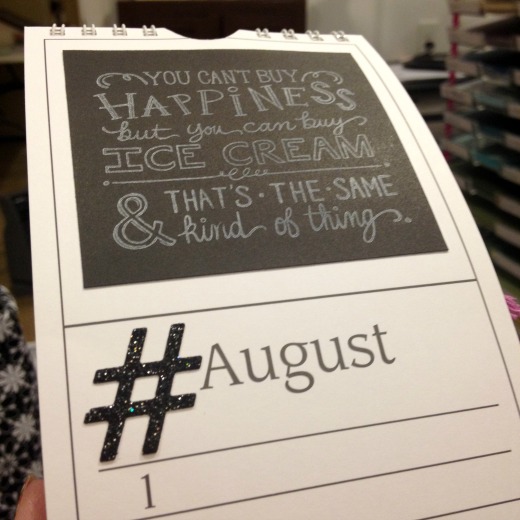 YOU CAN'T BUY
HAPPINESS
but you can buy
ICE CREAM
& THAT'S · THE · SAME
kind of thing.
#August
1